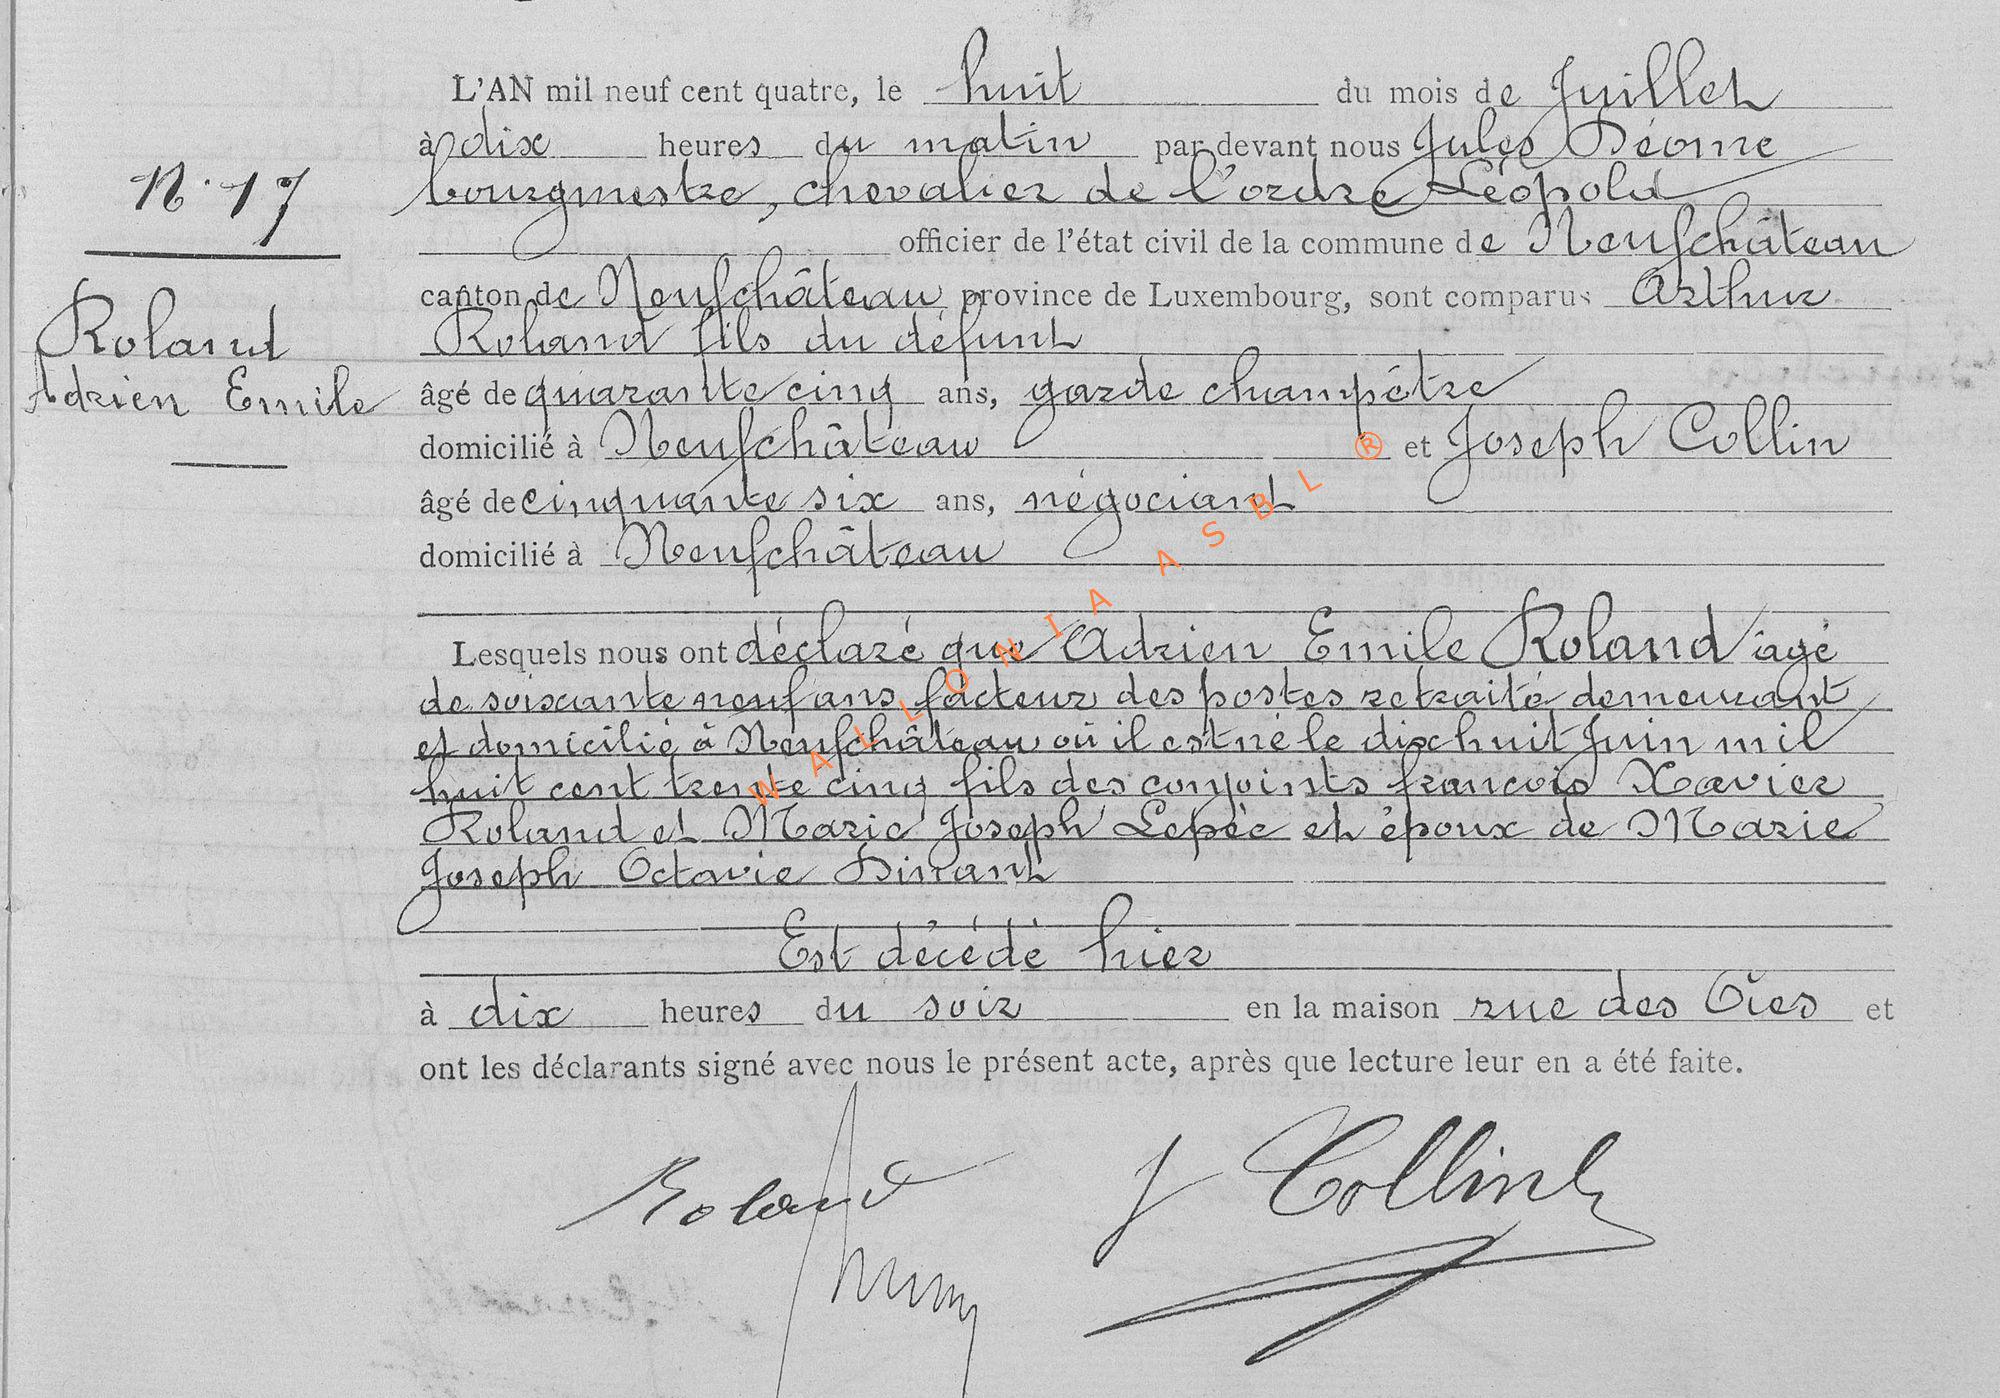 L'AN mil neuf cent quatre, le huit du mois de Juillet
à dix heures du matin par devant nous Jules Déome
N. 17
bourgmestre, chevalier de l'ordre Léopold
officier de l'état civil de la commune de Neufchâteau
canton de Neufchâteau province de Luxembourg, sont comparus Arthur
Roland
Roland fils du défunt
Adrien Emile
âgé de quarante cinq ans, garde champêtre
domicilié à Neufchâteau et Joseph Collin
âgé de cinquante six ans, négociant
domicilié à Neufchâteau
Lesquels nous ont déclaré que Adrien Emile Roland âgé
de soixante neuf ans facteur des postes retraité demeurant
et domicilié à Neufchâteau où il est né le dix huit Juin mil
huit cent trente cinq fils des conjoints francois Xavier
Roland et Marie Joseph Lepée et époux de Marie
Joseph Octavie Dinant
Est décédé hier
à dix heures du soir en la maison rue des Oies et
ont les déclarants signé avec nous le présent acte, après que lecture leur en a été faite.
Roland
J Collin
WALLONIA ASBL ®